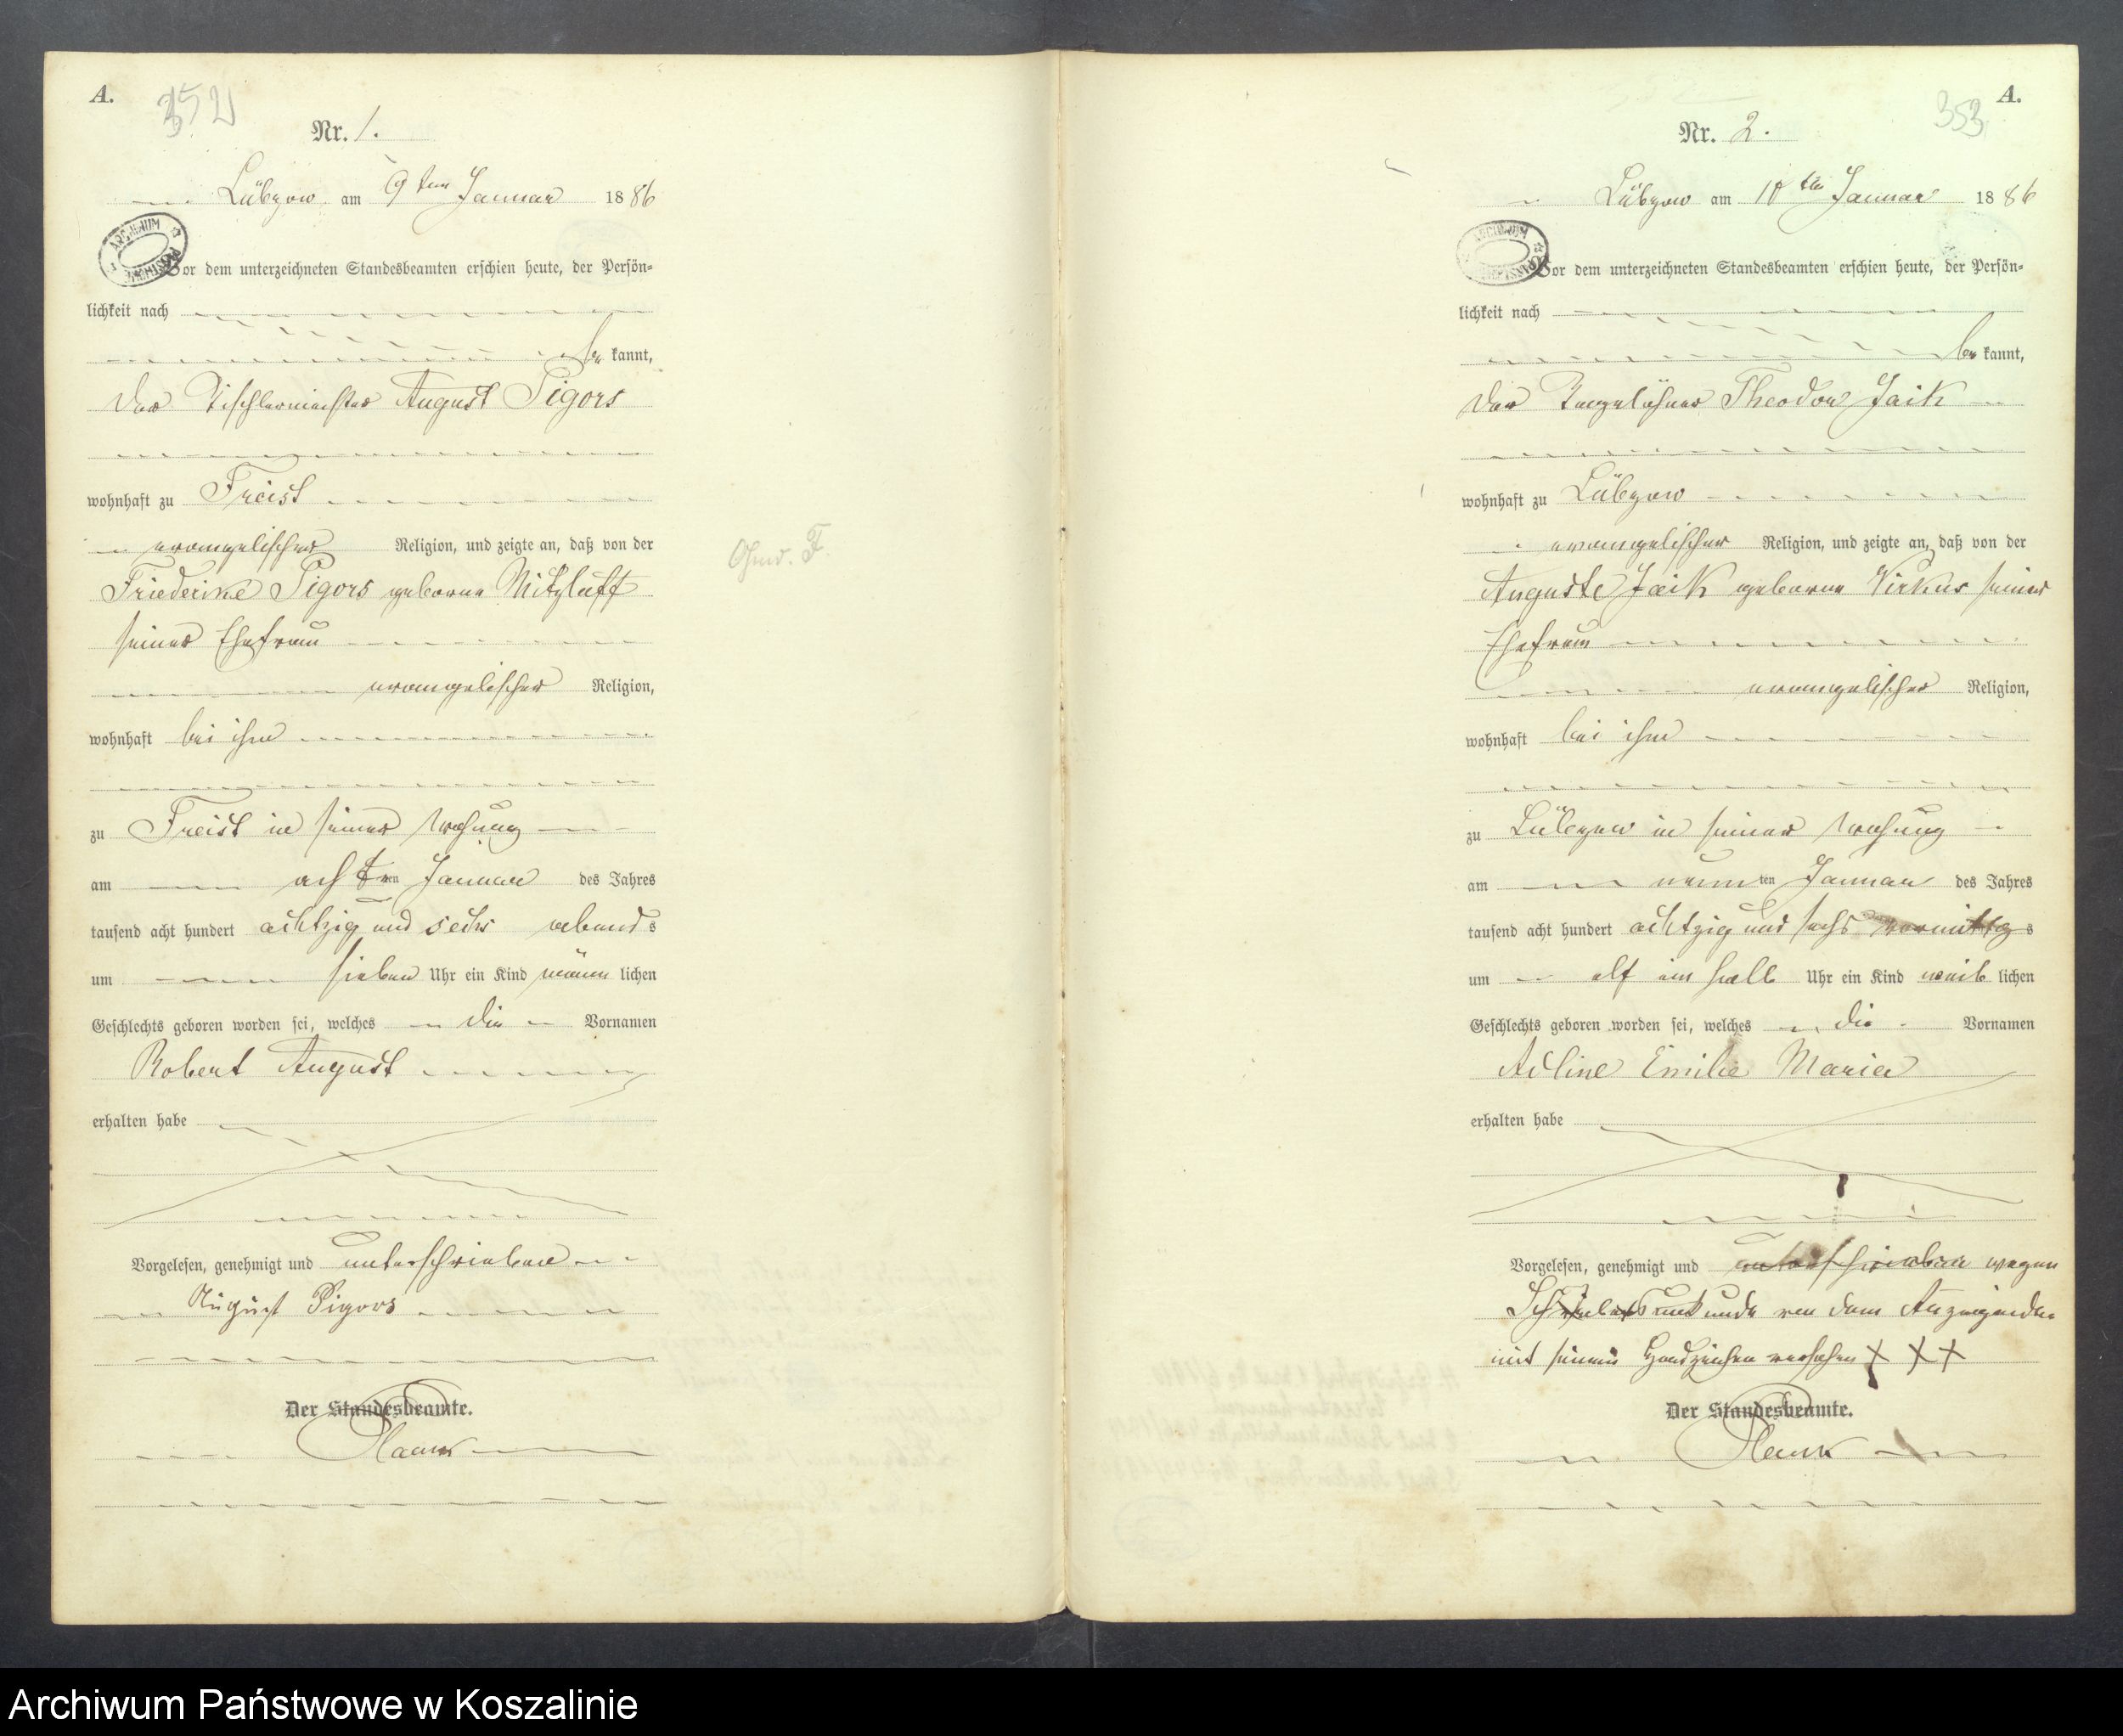 A.
352
Nr. 1.
Lübzow am 9ten Januar 1886
ARCHIWUM
Vor dem unterzeichneten Standesbeamten erschien heute, der Persön-
lichkeit nach
be kannt,
der Tischlermeister August Pigors
wohnhaft zu Freist
evangelischer Religion, und zeigte an, daß von der
Friederike Pigors geborne Nitzlaff
seiner Ehefrau
evangelischer Religion,
wohnhaft bei ihm
zu Freist in seiner Wohnung
am achten Januar des Jahres
tausend acht hundert achtzig und sechs abends
um sieben Uhr ein Kind männlichen
Geschlechts geboren worden sei, welches die Vornamen
Robert August
erhalten habe
Vorgelesen, genehmigt und unterschrieben
August Pigors
Der Standesbeamte.
A.
353
Nr. 2.
Lübzow am 10ten Januar 1886
ARCHIWUM
Vor dem unterzeichneten Standesbeamten erschien heute, der Persön-
lichkeit nach
be kannt,
der Tagelöhner Theodor Jaik
wohnhaft zu Lübzow
evangelischer Religion, und zeigte an, daß von der
Auguste Jaik geborne Virkus seiner
Ehefrau
evangelischer Religion,
wohnhaft bei ihm
zu Lübzow in seiner Wohnung
am neunten Januar des Jahres
tausend acht hundert achtzig und sechs vormittags
um elf ein halb Uhr ein Kind weiblichen
Geschlechts geboren worden sei, welches die Vornamen
Adline Emilie Maria
erhalten habe
Vorgelesen, genehmigt und unterschrieben wegen
Schreibensunkunde von dem Anzeigenden
mit seinem Handzeichen versehen XXX
Der Standesbeamte.
Archiwum Państwowe w Koszalinie